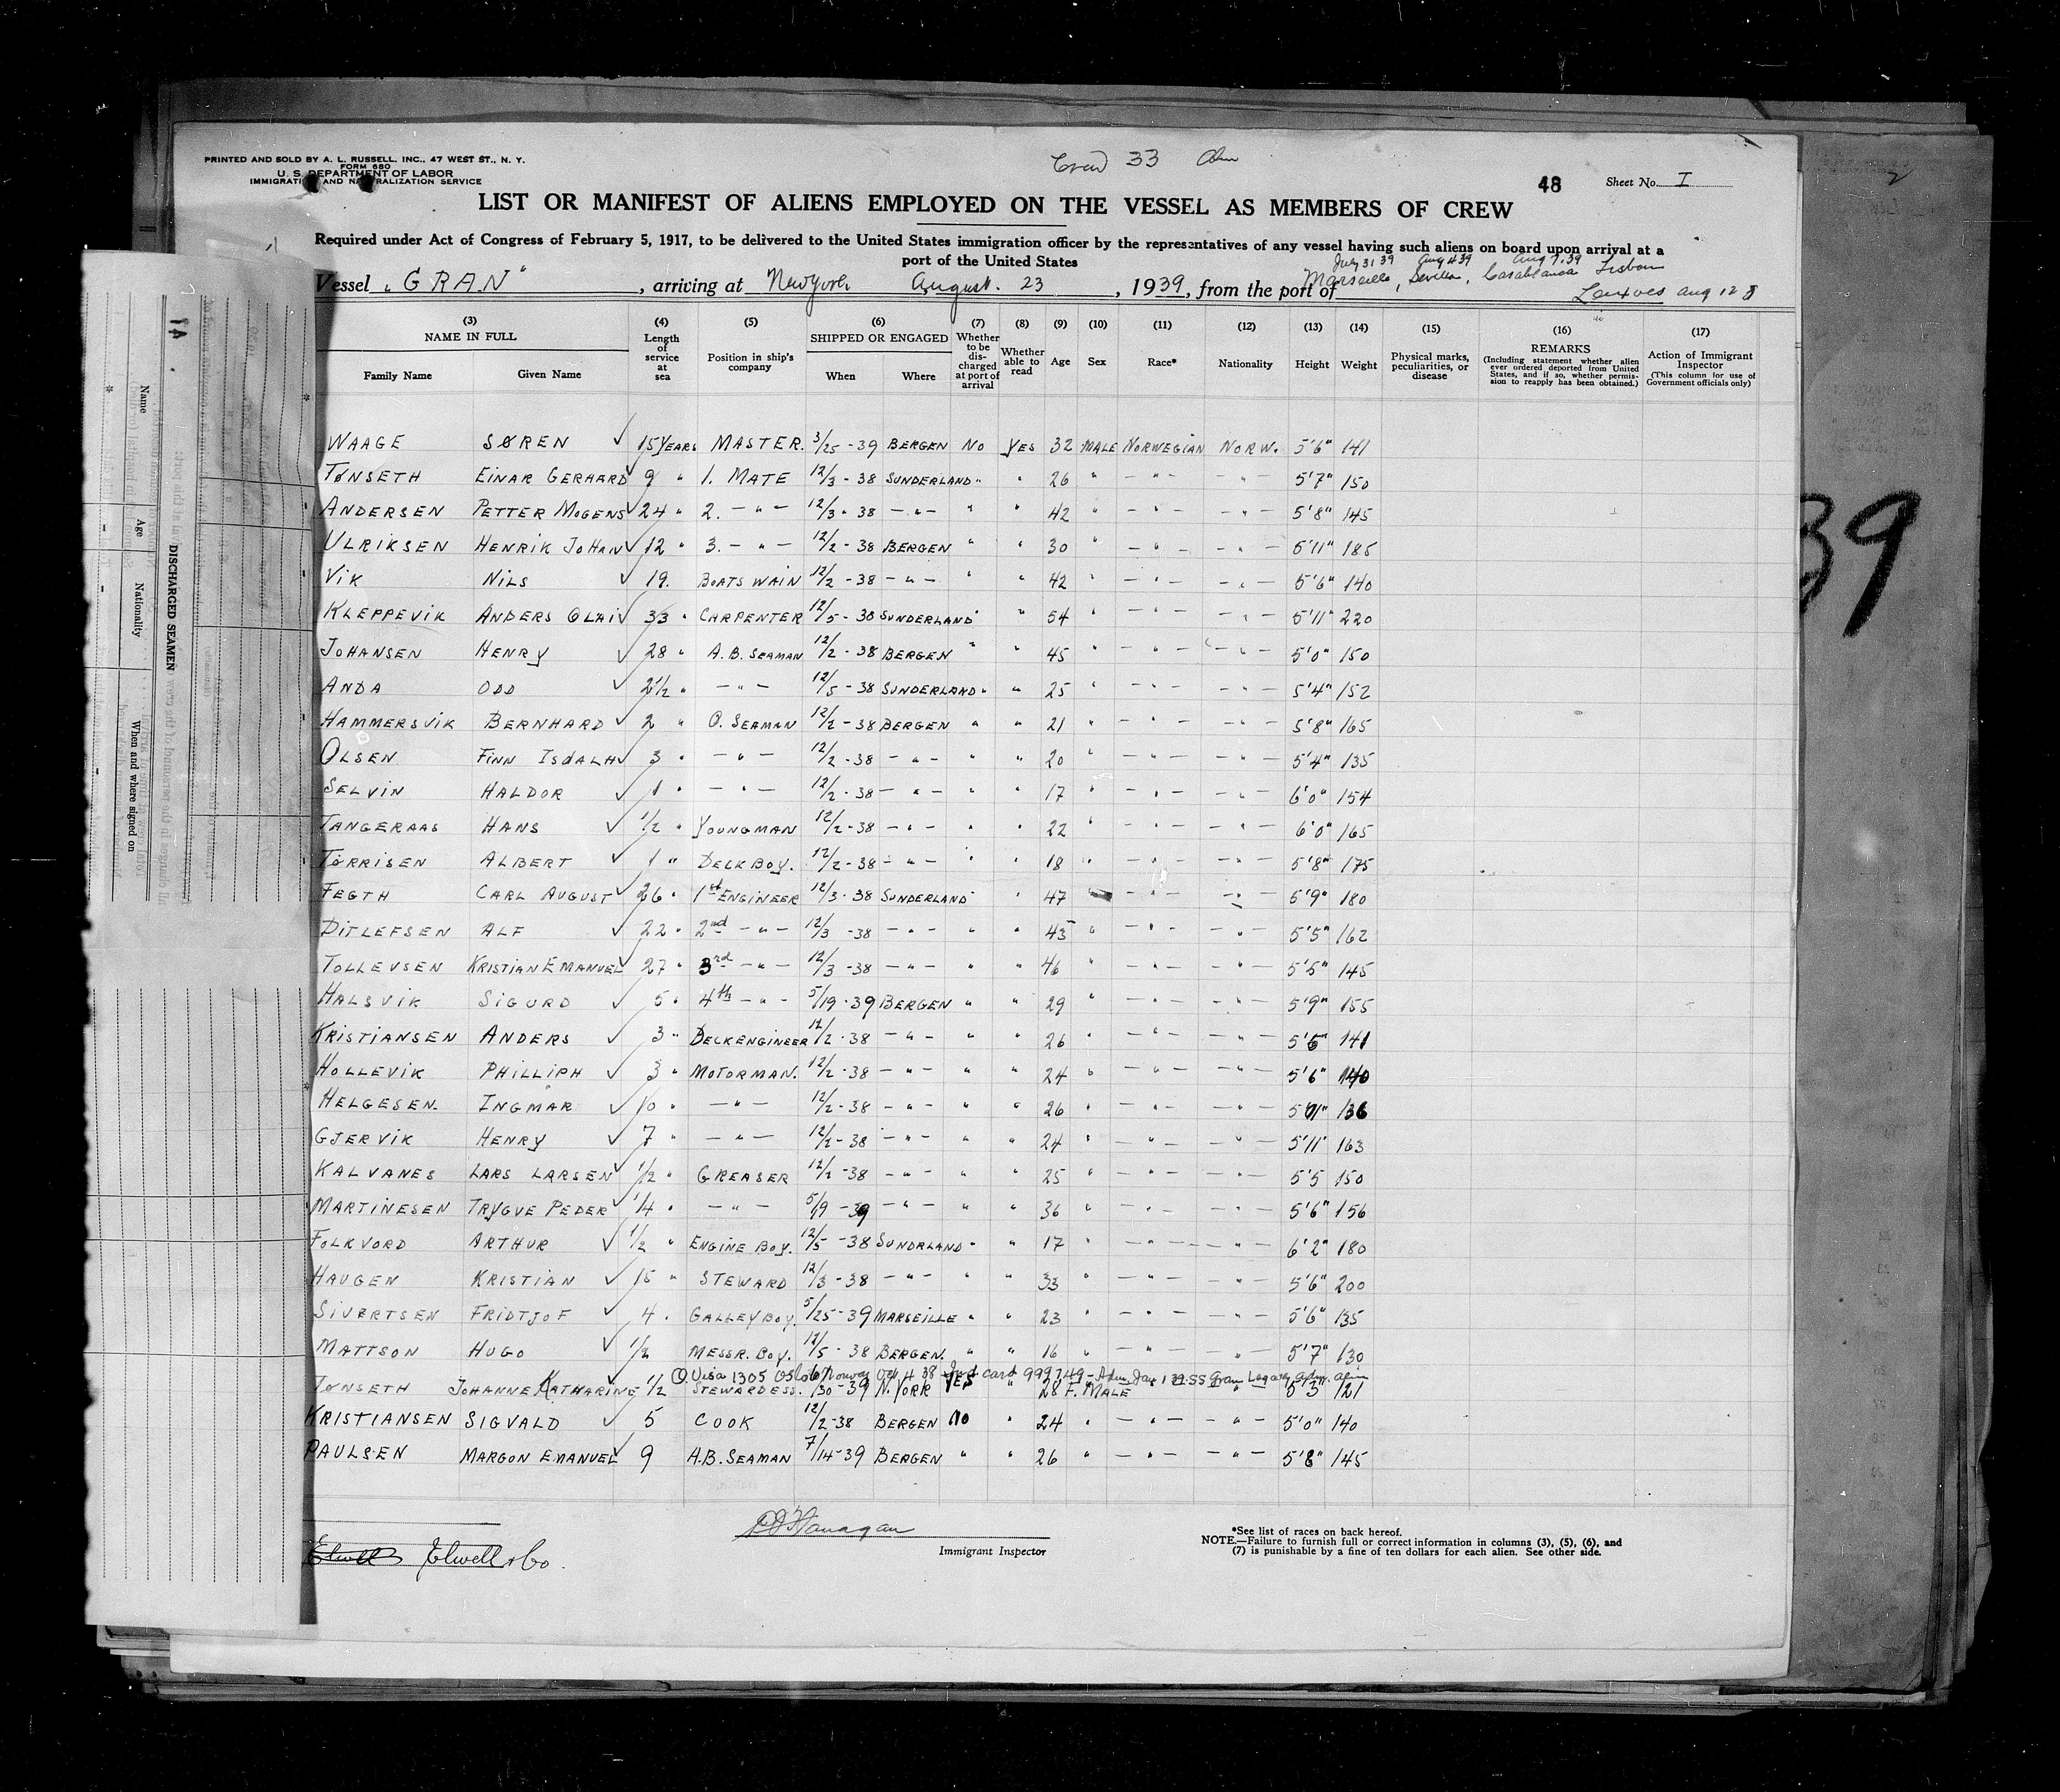 PRINTED AND SOLD BY A. L. RUSSELL, INC., 47 WEST ST., N. Y.
FORM 680
U. S. DEPARTMENT OF LABOR
IMMIGRATION AND NATURALIZATION SERVICE
Crew 33
48 Sheet No. I
LIST OR MANIFEST OF ALIENS EMPLOYED ON THE VESSEL AS MEMBERS OF CREW
Required under Act of Congress of February 5, 1917, to be delivered to the United States immigration officer by the representatives of any vessel having such aliens on board upon arrival at a
port of the United States
July 31 39 Aug 4 39 Aug 7.39
Vessel "GRAN", arriving at New York August. 23, 1939, from the port of Marseille, Sevilla, Casablanca Lisbon
Leixoes Aug 12
(3) (4) (5) (6) (7) (8) (9) (10) (11) (12) (13) (14) (15) (16) (17)
NAME IN FULL
Family Name Given Name
Length of service at sea
Position in ship's company
SHIPPED OR ENGAGED
When Where
Whether to be discharged at port of arrival
Whether able to read
Age Sex Race* Nationality Height Weight
Physical marks, peculiarities, or disease
REMARKS
(Including statement whether alien ever ordered deported from United States, and if so, whether permission to reapply has been obtained.)
Action of Immigrant Inspector
(This column for use of Government officials only)
WAAGE SØREN ✓ 15 YEARS MASTER. 3/25-39 BERGEN NO YES 32 MALE NORWEGIAN NORW. 5'6" 141
TØNSETH EINAR GERHARD ✓ 9 " 1. MATE 12/3-38 SUNDERLAND " " 26 " -"- -"- 5'7" 150
ANDERSEN PETTER MOGENS ✓ 24 " 2. -"- 12/3-38 -"- " " 42 " -"- -"- 5'8" 145
ULRIKSEN HENRIK JOHAN ✓ 12 " 3. -"- 12/2-38 BERGEN " " 30 " -"- -"- 5'11" 185
VIK NILS ✓ 19. BOATSWAIN 12/2-38 -"- " 42 " -"- -"- 5'6" 140
KLEPPEVIK ANDERS OLAI ✓ 33 " CARPENTER 12/5-38 SUNDERLAND " " 54 " -"- "- 5'11" 220
JOHANSEN HENRY ✓ 28 " A.B. SEAMAN 12/2-38 BERGEN " " 45 " -"- -"- 5'0" 150
ANDA ODD ✓ 2 1/2 " -"- 12/5-38 SUNDERLAND " " 25 " -"- -"- 5'4" 152
HAMMERSVIK BERNHARD ✓ 2 " O. SEAMAN 12/2-38 BERGEN " " 21 " -"- -"- 5'8" 165
OLSEN FINN ISDALH ✓ 3 " -"- 12/2-38 -"- " " 20 " -"- -"- 5'4" 135
SELVIN HALDOR ✓ 1 " -"- 12/2-38 -"- " " 17 " -"- -"- 6'0" 154
TANGERAAS HANS ✓ 1/2 " YOUNGMAN 12/2-38 -"- " " 22 " -"- -"- 6'0" 165
TØRRISEN ALBERT ✓ 1 " DECK BOY. 12/2-38 -"- " " 18 " -"- -"- 5'8" 175
FEGTH CARL AUGUST ✓ 26 " 1st ENGINEER 12/3-38 SUNDERLAND " 47 -"- -"- 5'9" 180
DITLEFSEN ALF ✓ 22 " 2nd -"- 12/3-38 -"- " " 45 " -"- -"- 5'5" 162
TOLLEVSEN KRISTIAN EMANUEL ✓ 27 " 3rd -"- 12/3-38 -"- " " 46 " -"- -"- 5'5" 145
HALSVIK SIGURD ✓ 5 " 4th -"- 5/19-39 BERGEN " " 29 " -"- -"- 5'9" 155
KRISTIANSEN ANDERS ✓ 3 " DECKENGINEER 12/2-38 -"- " " 26 " -"- " - 5'6" 141
HOLLEVIK PHILLIPH ✓ 3 " MOTORMAN. 12/2-38 -"- " " 24 " -"- -"- 5'6" 140
HELGESEN. INGMAR ✓ 10 " -"- 12/2-38 -"- " " 26 " -"- -"- 5'11" 136
GJERVIK HENRY ✓ 7 " -"- 12/2-38 -"- " " 24 " -"- -"- 5'11" 163
KALVANES LARS LARSEN ✓ 1/2 " GREASER 12/2-38 -"- " " 25 " -"- -"- 5'5 150
MARTINESEN TRYGVE PEDER ✓ 1/4 " -"- 5/19-39 -"- " " 36 " -"- -"- 5'6" 156
FOLKVORD ARTHUR ✓ 1/2 " ENGINE BOY. 12/5-38 SUNDRLAND " " 17 " -"- -"- 6'2" 180
HAUGEN KRISTIAN ✓ 15 " STEWARD 12/3-38 -"- " " 33 " -"- -"- 5'6" 200
SIVERTSEN FRIDTJOF ✓ 4 . GALLEY BOY. 5/25-39 MARSEILLE " " 23 " -"- -"- 5'6" 135
MATTSON HUGO ✓ 1/2 MESSR. BOY. 12/5-38 BERGEN. " " 16 " -"- " 5'7" 130
Visa 1305 Oslo Norway Oct 4 38 card 999749 - Adm. Jan 1 SS Gran
TØNSETH JOHANNE KATHARINE ✓ 1/2 STEWARDESS. /30-39 N. YORK YES " 28 F. MALE " " 5'3" 121
KRISTIANSEN SIGVALD ✓ 5 COOK 12/2-38 BERGEN NO " 24 " -"- -"- 5'0" 140
PAULSEN MARGON EMANUEL ✓ 9 A.B. SEAMAN 7/14-39 BERGEN " " 26 " -"- -"- 5'8" 145
Elwell Elwell & Co.
Flanagan
Immigrant Inspector
*See list of races on back hereof.
NOTE.—Failure to furnish full or correct information in columns (3), (5), (6), and
(7) is punishable by a fine of ten dollars for each alien. See other side.
DISCHARGED SEAMEN
Name Age Nationality When and where signed on
39